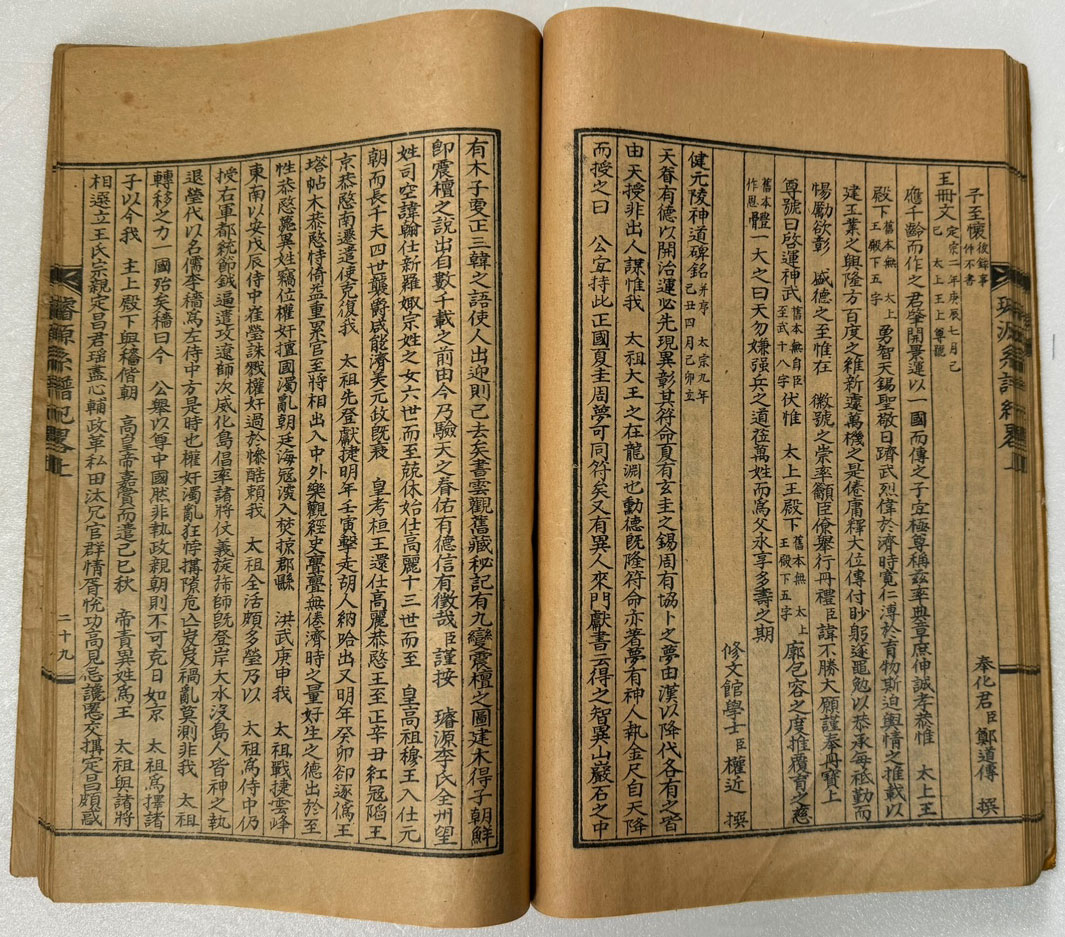 子至懷 後叙事件不書 奉化君臣鄭道傳 撰
王冊文 定宗二年庚辰七月己巳 太上王上尊號
應千齡而作之君肇開景運以一國而傳之子宜極尊稱玆率典章庶伸誠孝恭惟 太上王
殿下 舊本無 太上王殿下五字 勇智天錫聖敬日躋武烈偉於濟時寬仁溥於育物斯迫輿情之推載以
建王業之興隆方百度之維新遽萬機之是倦庸釋大位傳付眇躬逐黽勉以恭承每祗勤而
惕勵欲彰 盛德之至惟在 徽號之崇率籲臣僚擧行冊禮臣諱不勝大願謹奉冊寶上
尊號曰啓運神武 舊本無自臣至武十八字 伏惟 太上王殿下 舊本無 太上王殿下五字 廓包容之度推覆育之慈
舊本體作恩骨 一大之曰天勿嫌强兵之道莅萬姓而爲父永享多壽之期
健元陵神道碑銘 幷序 太宗九年己丑四月己卯立
修文館學士臣權近 撰
天眷有德以開治運必先現異彰其符命夏有玄圭之錫周有協卜之夢由漢以降代各有之皆
由天授非出人謀惟我 太祖大王之在龍淵也勳德旣隆符命亦著夢有神人執金尺自天降
而授之曰 公宜持此正國夏圭周夢可同符矣又有異人來門獻書云得之智異山巖石之中
有木子更正三韓之語使人出迎則已去矣書雲觀舊藏秘記有九變震檀之圖建木得子朝鮮
卽震檀之說出自數千載之前由今乃驗天之眷佑有德信有徵哉臣謹按 璿源李氏全州望
姓司空諱翰仕新羅娶宗姓之女六世而至兢休始仕高麗十三世而至 皇高祖穆王入仕元
朝而長千夫四世襲爵咸能濟美元政旣衰 皇考桓王還仕高麗恭愍王至正辛丑紅冦陷王
京恭愍南遷遣使克復我 太祖先登獻捷明年壬寅擊走胡人納哈出又明年癸卯卻逐僞王
塔帖木恭愍恃倚益重累官至將相出入中外樂觀經史亹亹無倦濟時之量好生之德出於至
性恭愍薨異姓竊位權奸擅國濁亂朝廷海冦深入焚掠郡縣 洪武庚申我 太祖戰捷雲峰
東南以安戊辰侍中崔瑩誅戮權奸過於慘酷賴我 太祖全活頗多瑩乃以 太祖爲侍中仍
授右軍都統節鉞逼遣攻遼師次威化島倡率諸將仗義旋旆師旣登岸大水沒島人皆神之執
退瑩代以名儒李穡爲左侍中方是時也權奸濁亂狂悖搆隙危亾岌岌禍亂莫測非我 太祖
轉移之力一國殆矣穡曰今 公擧以尊中國然非執政親朝則不可克日如京 太祖爲擇諸
子以今我 主上殿下與穡偕朝 高皇帝嘉賞而遣己巳秋 帝責異姓爲王 太祖與諸將
相選立王氏宗親定昌君瑤盡心輔政革私田汰冗官群情胥悅功高見忌讒慝交搆定昌頗惑
璿源系譜紀畧上
二十九